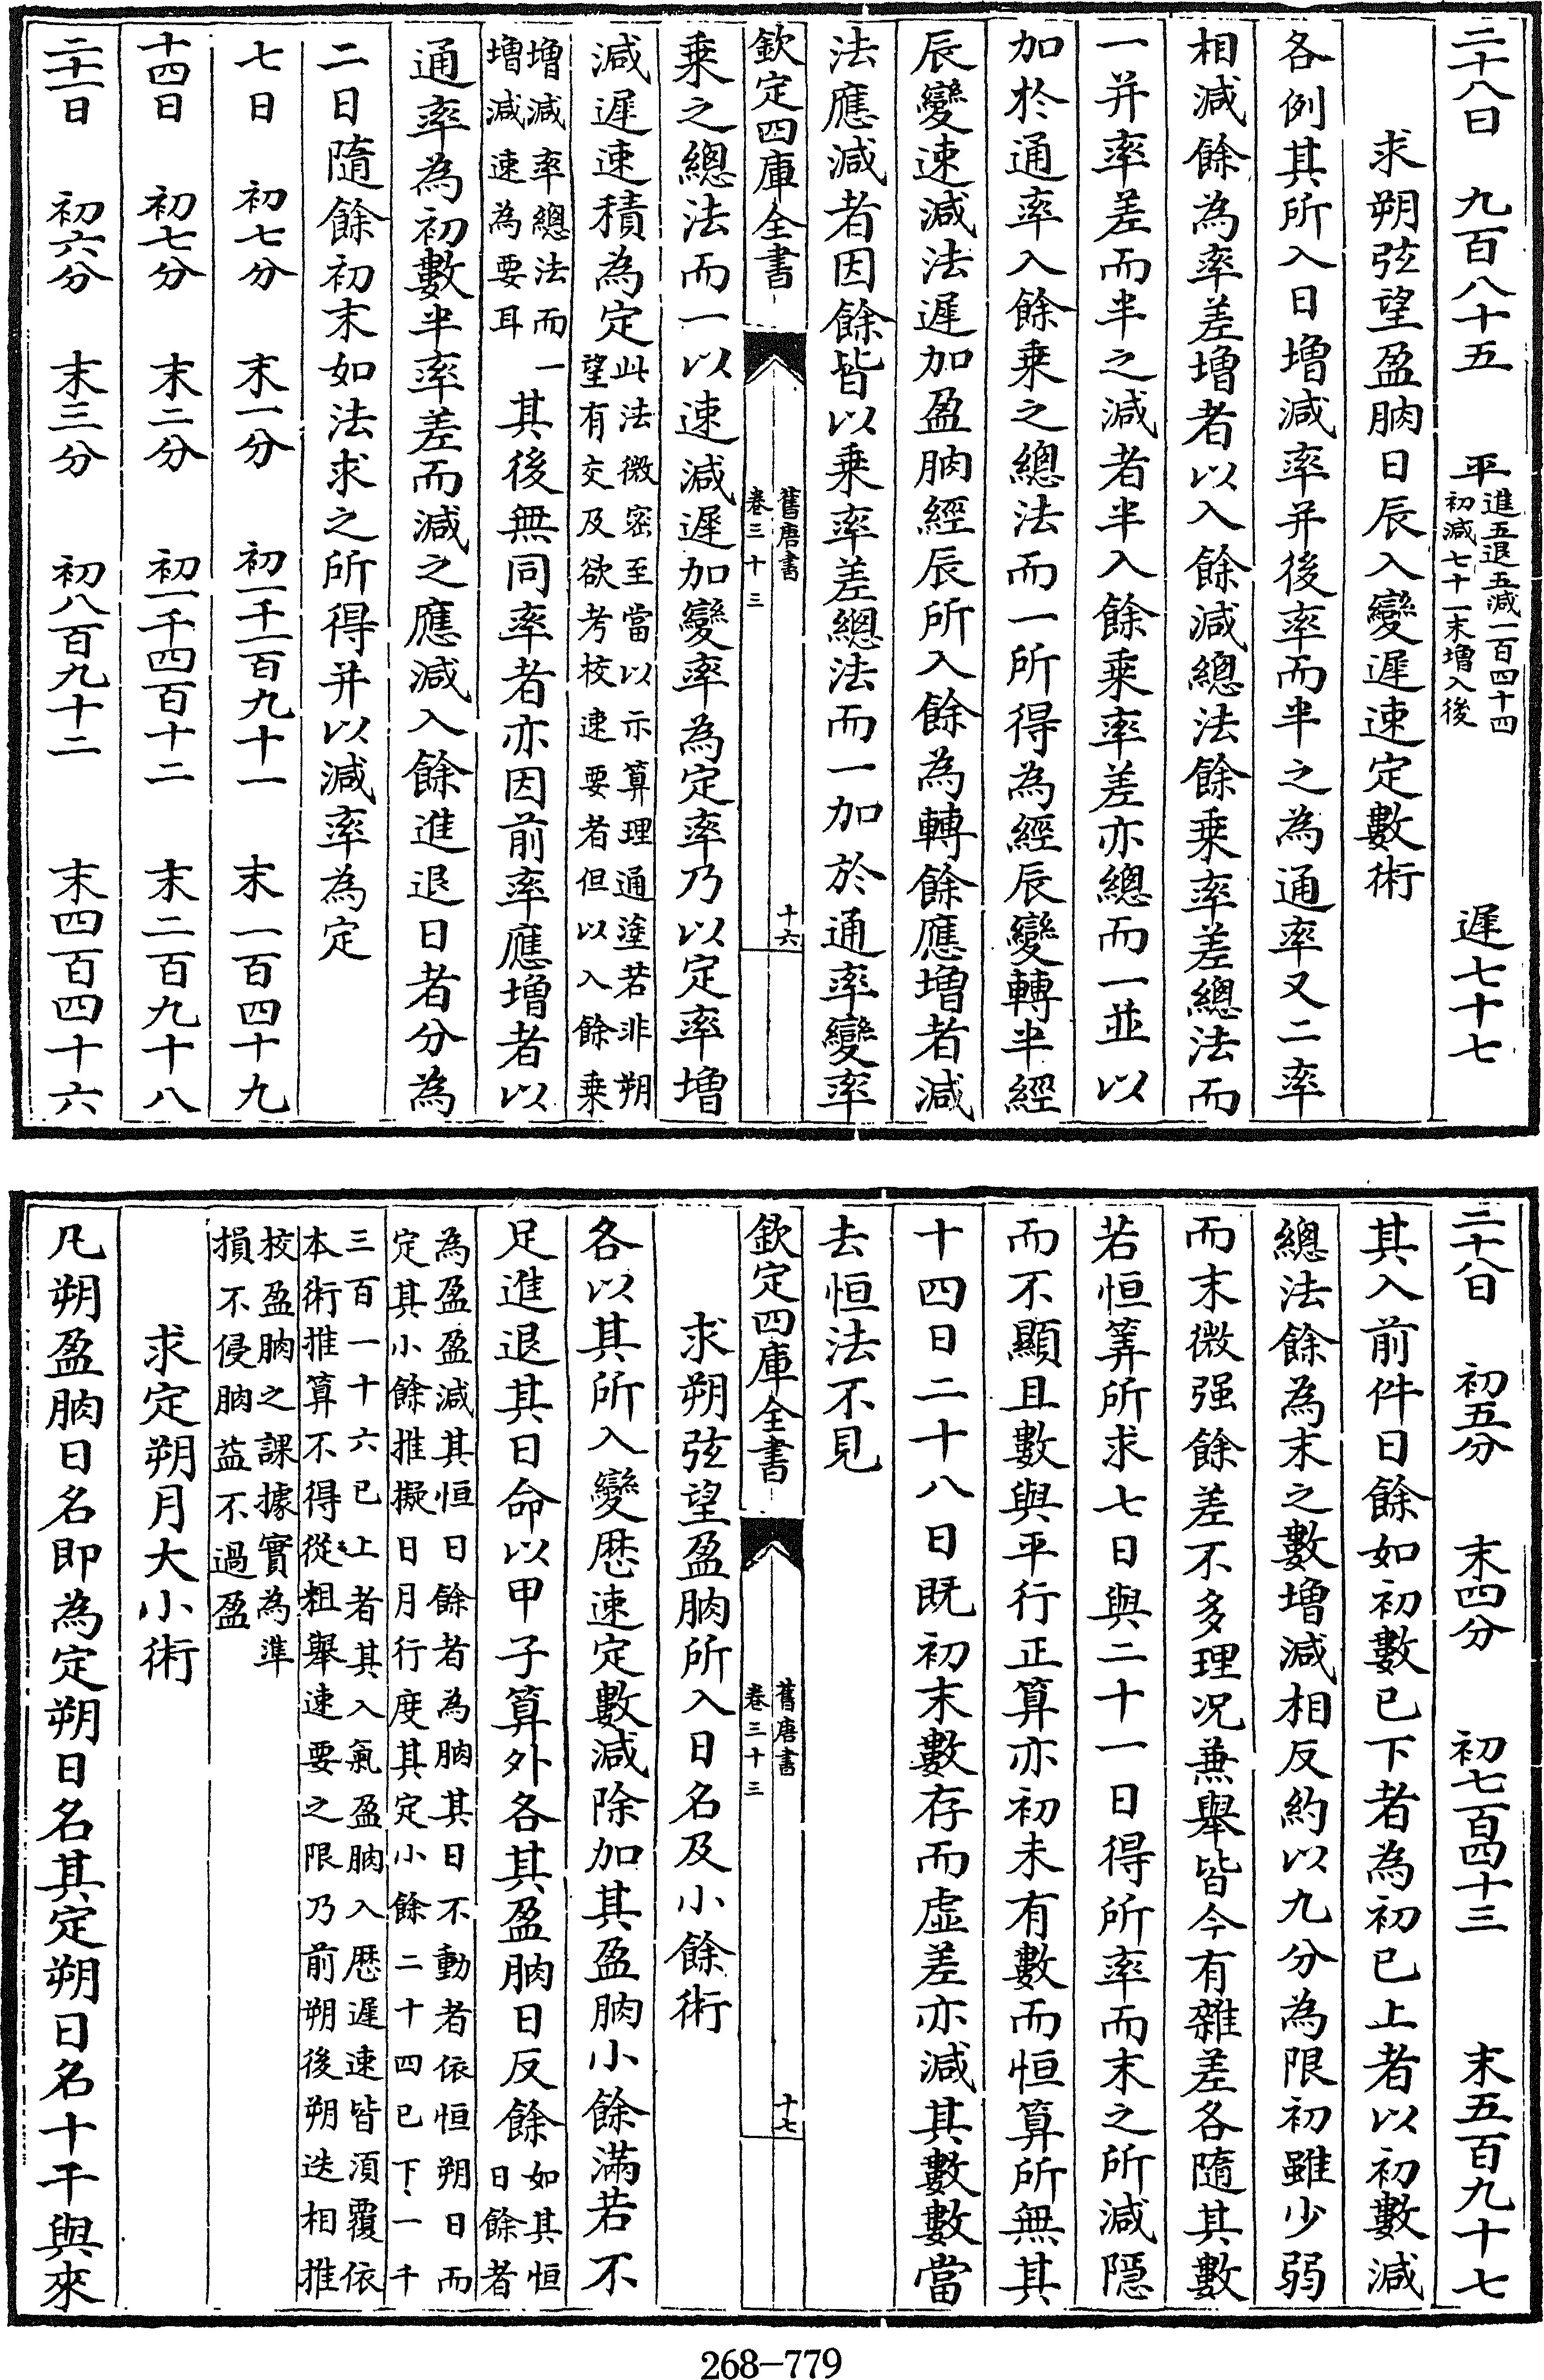 二十八日　九百八十五　平進五退五減一百四十四初減七十一末增入後　遲七十七
求朔弦望盈朒日辰入變遲速定數術
各例其所入日增減率并後率而半之為通率又二率
相減餘為率差增者以入餘減總法餘乗率差總法而
一并率差而半之減者半入餘乗率差亦總而一並以
加於通率入餘乗之總法而一所得為經辰變轉半經
辰變速減法遲加盈朒經辰所入餘為轉餘應增者減
法應減者因餘皆以乗率差總法而一加於通率變率
欽定四庫全書　舊唐書卷三十三　十六
乗之總法而一以速減遲加變率為定率乃以定率增
減遲速積為定此法微密至當以示算理通塗若非朔望有交及欲考校速要者但以入餘乗
增減率總法而一增減速為要耳其後無同率者亦因前率應增者以
通率為初數半率差而減之應減入餘進退日者分為
二日隨餘初末如法求之所得并以減率為定
七日　初七分　末一分　初一千一百九十一　末一百四十九
十四日　初七分　末二分　初一千四百十二　末二百九十八
二十一日　初六分　末三分　初八百九十二　末四百四十六
二十八日　初五分　末四分　初七百四十三　末五百九十七
其入前件日餘如初數已下者為初已上者以初數減
總法餘為末之數增減相反約以九分為限初雖少弱
而末微强餘差不多理况兼舉皆今有雜差各隨其數
若恒筭所求七日與二十一日得所率而末之所減隱
而不顯且數與平行正算亦初末有數而恒算所無其
十四日二十八日既初末數存而虛差亦減其數數當
去恒法不見
欽定四庫全書　舊唐書卷三十三　十七
求朔弦望盈朒所入日名及小餘術
各以其所入變厯速定數減除加其盈朒小餘滿若不
足進退其日命以甲子算外各其盈朒日反餘如其恒日餘者
為盈盈減其恒日餘者為朒其日不動者依恒朔日而定其小餘推擬日月行度其定小餘二十四已下一千
三百一十六已上者其入氣盈朒入厯遲速皆須覆依本術推算不得從粗舉速要之限乃前朔後朔迭相推
挍盈朒之課據實為準損不侵朒益不過盈
求定朔月大小術
凡朔盈朒日名即為定朔日名其定朔日名十干與來
268-779